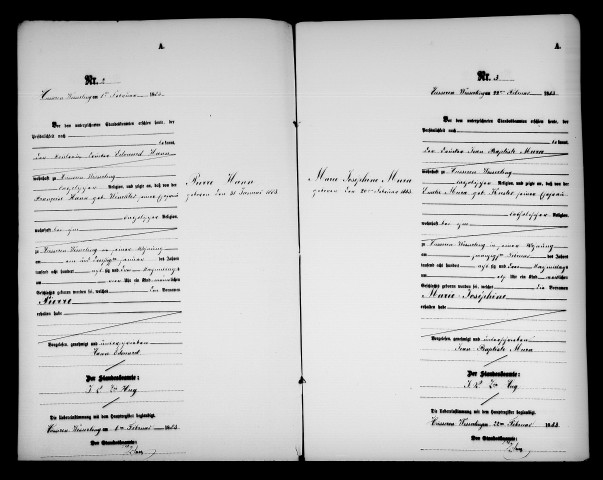 A.
Nr. 2
Husseren Wesserling am 1ten Februar 1883
Vor dem unterzeichneten Standesbeamten erschien heute, der
Persönlichkeit nach
bekannt,
Edouard Hann
wohnhaft zu Husseren Wesserling
katholischer Religion, und zeigte an, daß von der
Françoise Hann geb.
katholischer Religion,
wohnhaft bei ihm
zu Husseren Wesserling in seiner Wohnung
am ein und dreißigsten Januar des Jahres
tausend acht hundert achtzig und drei Vormittags
um Uhr ein Kind männlichen
Geschlechts geboren worden sei, welches den Vornamen
Pierre
erhalten habe
Vorgelesen, genehmigt und unterschrieben
Hann Edouard
Der Standesbeamte:
Hug
Die Uebereinstimmung mit dem Hauptregister beglaubigt.
Husseren Wesserling am 1ten Februar 1883
Der Standesbeamte:
Hug
Pierre Hann
geboren den 31 Januar 1883
A.
Nr. 3
Husseren Wesserling am 22ten Februar 1883
Vor dem unterzeichneten Standesbeamten erschien heute, der
Persönlichkeit nach
bekannt,
Jean Baptiste Mura
wohnhaft zu Husseren Wesserling
katholischer Religion, und zeigte an, daß von der
Mura geb.
katholischer Religion,
wohnhaft bei ihm
zu Husseren Wesserling in seiner Wohnung
am zwanzigsten Februar des Jahres
tausend acht hundert achtzig und drei Nachmittags
um Uhr ein Kind weiblichen
Geschlechts geboren worden sei, welches die Vornamen
Marie Joséphine
erhalten habe
Vorgelesen, genehmigt und unterschrieben
Jean Baptiste Mura
Der Standesbeamte:
Hug
Die Uebereinstimmung mit dem Hauptregister beglaubigt.
Husseren Wesserling am 22ten Februar 1883
Der Standesbeamte:
Hug
Marie Joséphine Mura
geboren den 20ten Februar 1883